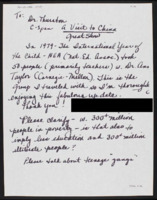 To:
Dr. Thurston
A Visit to China
Great Show!
In 1979 - The International Year of
the Child - NEA (Nat. Ed. Assoc.) took
people (primarily teachers) & Dr. Ann
Taylor (Carnegie-Mellon). This is the
group I traveled with - so I'm thoroughly
enjoying this fabulous up-date.
Thank you!
Please clarify - w. 300+ million
people in poverty - is that also to
imply low education and 300+ million
illiterate people?
Please talk about teenage gangs.